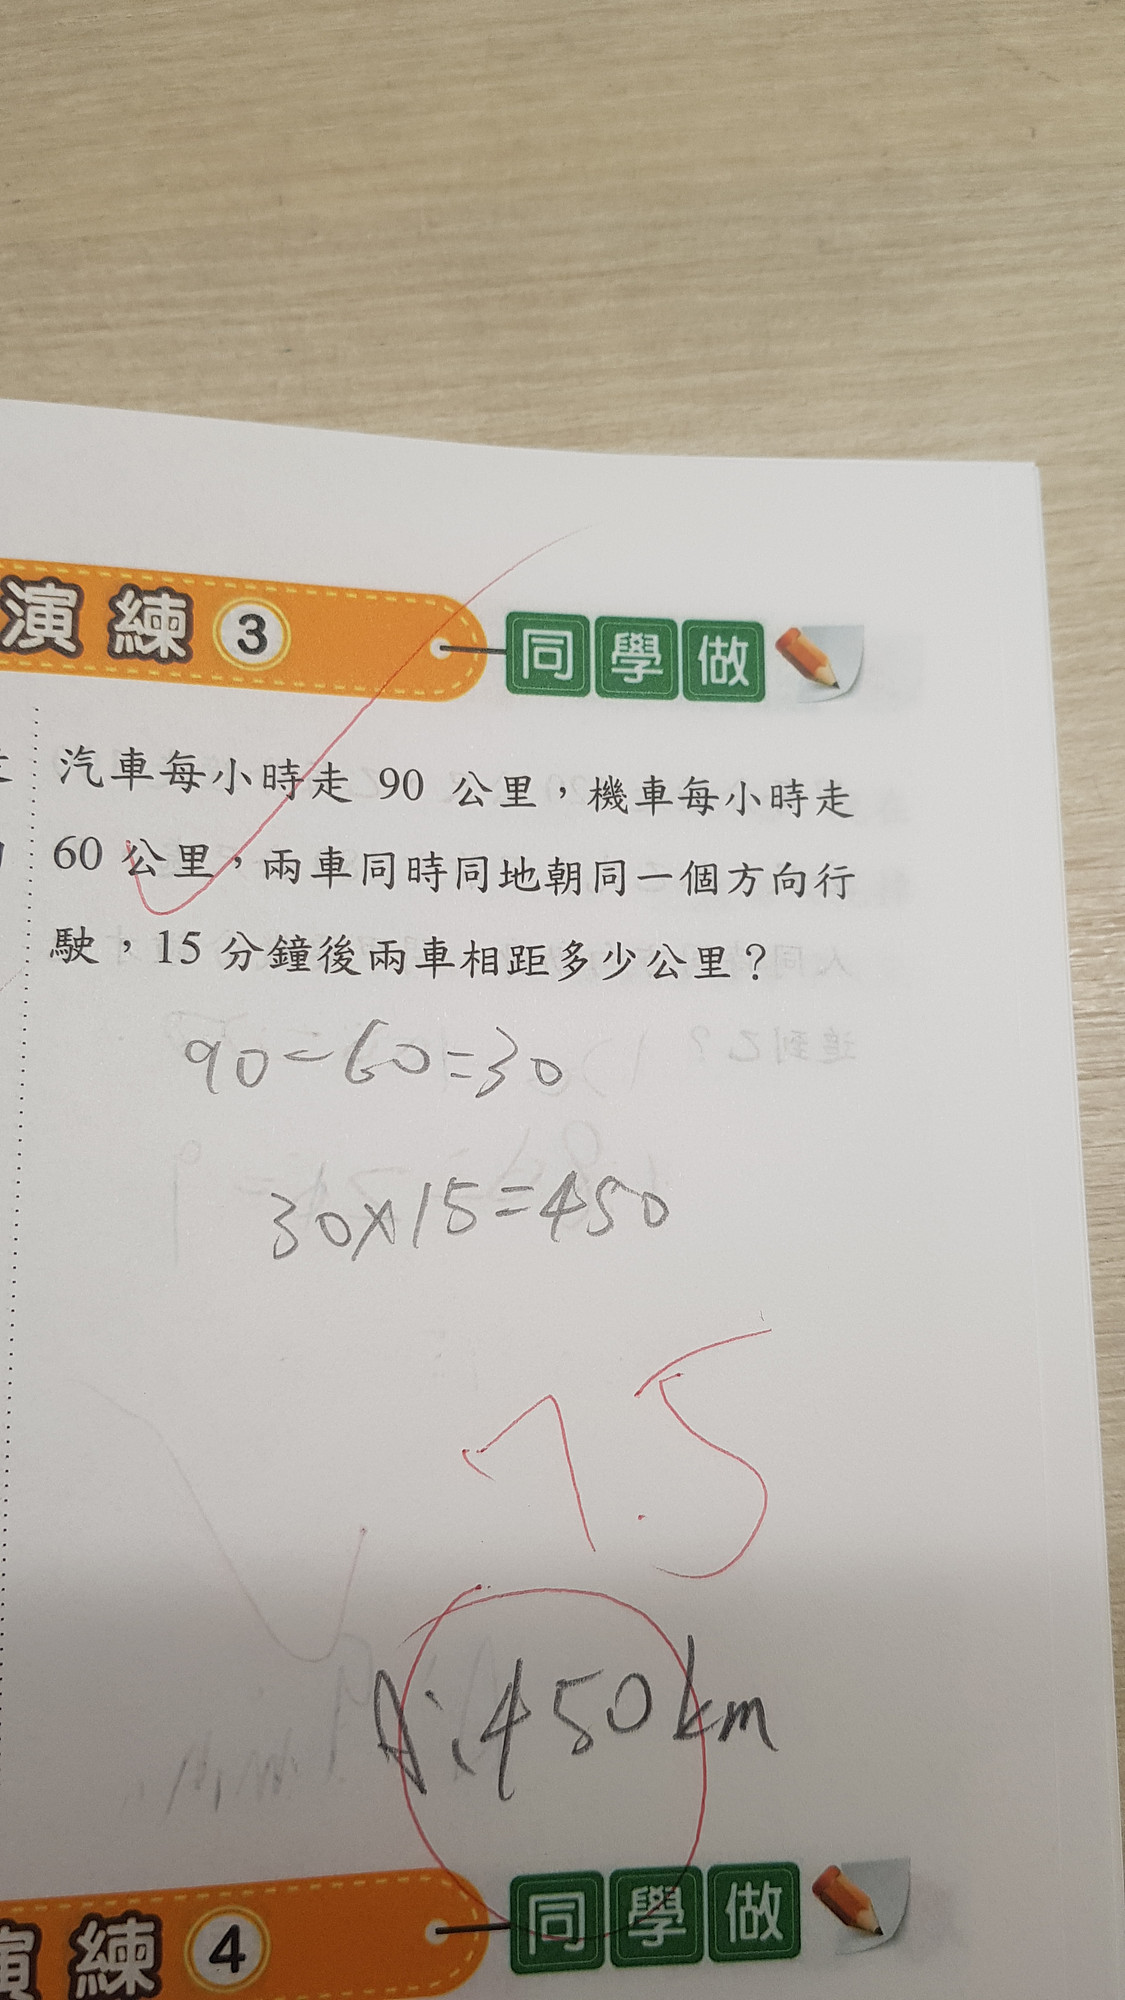 演練 3 同學做
汽車每小時走 90 公里，機車每小時走
60 公里，兩車同時同地朝同一個方向行
駛，15 分鐘後兩車相距多少公里？
90-60=30
30×15=450
7.5
A:450km
演練 4 同學做